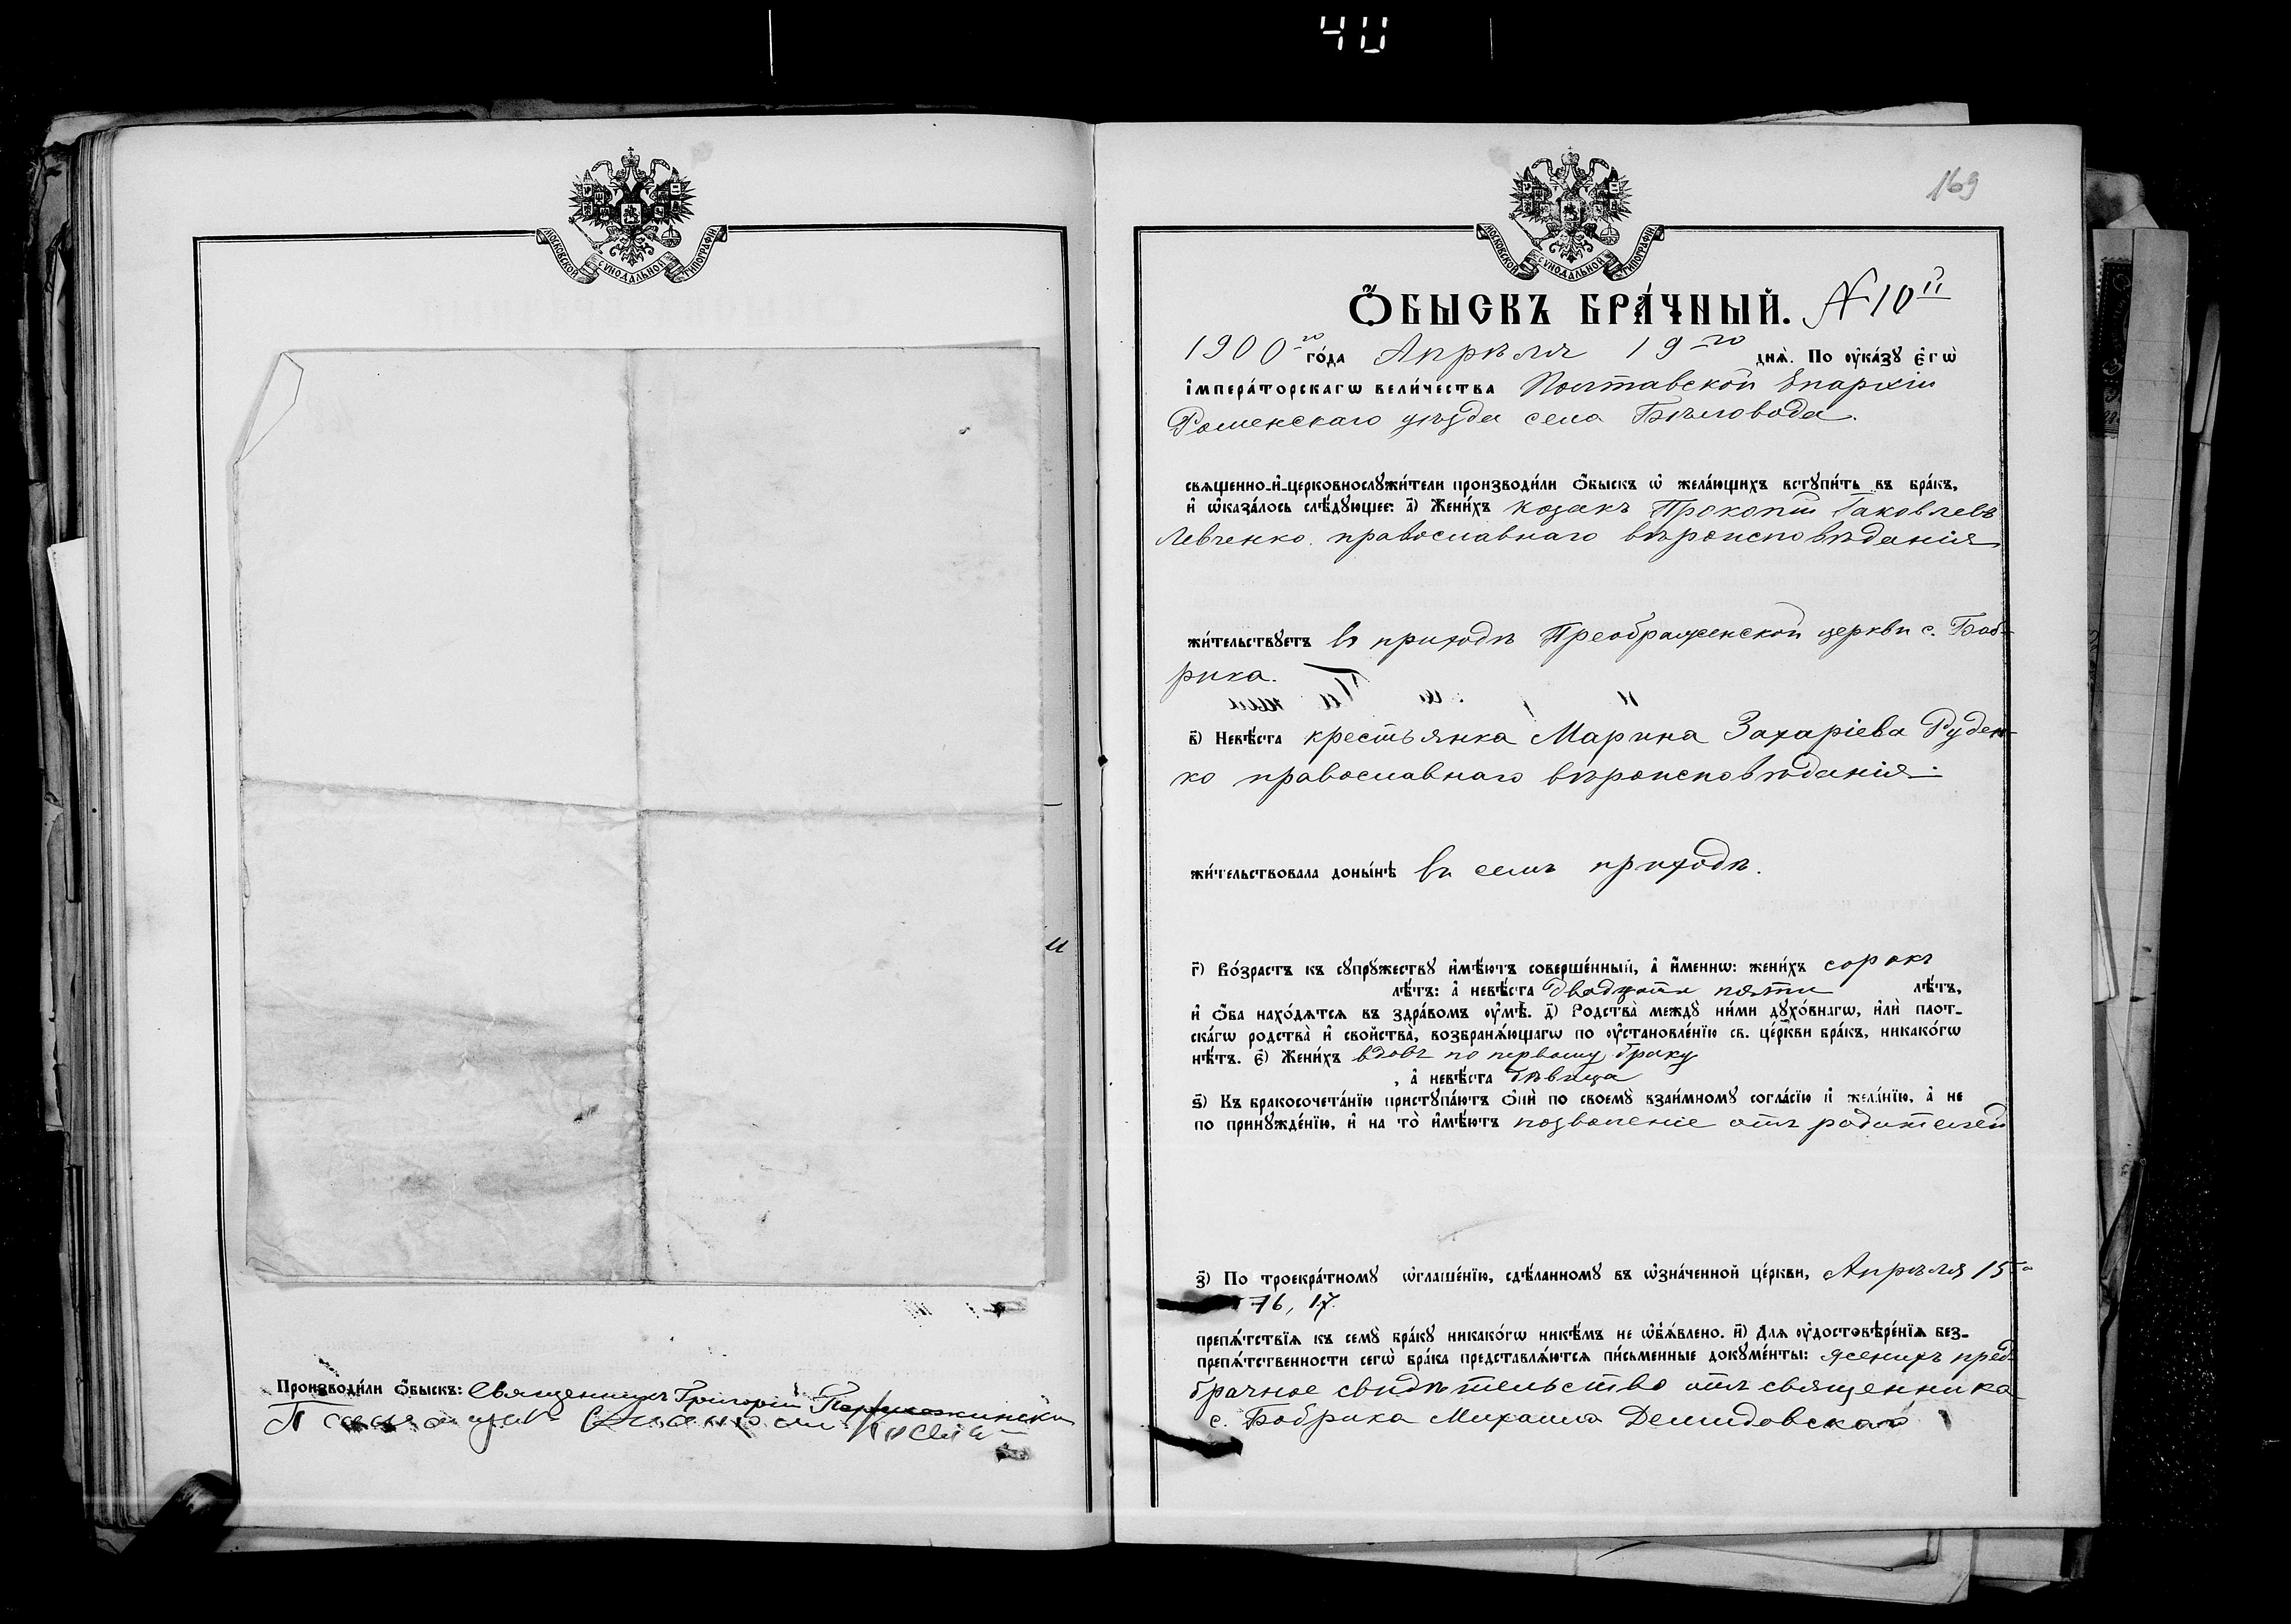 40
МОСКОВСКОЙ СУНОДАЛЬНОЙ ТИПОГРАФІИ
Производи́ли Ѻ҆́быскъ: Священникъ Григорій
Псаломщикъ
169
МОСКОВСКОЙ СУНОДАЛЬНОЙ ТИПОГРАФІИ
Ѻ҆́БЫСКЪ БРА́ЧНЫЙ. № 10й
1900го го́да Апрѣля 19го днѧ̀. По ᲂу҆ка́зꙋ є҆гѡ̀
і҆мпера́торскагѡ вели́чества Полтавской Епархіи
Роменскаго уѣзда села Бѣловода.
свѧщенно-и҆-церковнослꙋжи́тели производи́ли Ѻ҆́быскъ ѡ҆ жела́ющихъ встꙋпи́ть въ бра́къ,
и҆ ѡ҆каза́лось слѣ́дꙋющее: а҃) Жени́хъ козакъ Прокопій Іаковлевъ
Левченко православнаго вѣроисповѣданія
жи́тельствꙋетъ въ приходѣ Преображенской церкви с. Боб-
рика.
в҃) Невѣ́ста крестьянка Марина Захаріева Руден-
ко православнаго вѣроисповѣданія.
жи́тельствовала доны́нѣ въ семъ приходѣ.
г҃) Во́зрастъ къ сꙋпрꙋ́жествꙋ и҆мѣ́ютъ соверше́нный, а҆ и҆́меннѡ: жени́хъ сорокъ
лѣ́тъ: а҆ невѣ́ста двадцати пяти лѣ́тъ,
и҆ Ѻ҆́ба нахо́дѧтсѧ въ здра́вомъ ᲂу҆мѣ̀. д҃) Родства̀ междꙋ̀ ни́ми дꙋхо́внагѡ, и҆лѝ плот-
ска́гѡ родства̀ и҆ свойства̀, возбранѧ́ющагѡ по ᲂу҆становле́нїю св. це́ркви бра́къ, никако́гѡ
нѣ́тъ. є҃) Жени́хъ вдовъ по первому браку
, а҆ невѣ́ста дѣвица
ѕ҃) Къ бракосочета́нїю пристꙋпа́ютъ Ѻ҆нѝ по своемꙋ̀ взаи́мномꙋ согла́сїю и҆ жела́нїю, а҆ не
по принꙋжде́нїю, и҆ на то̀ и҆мѣ́ютъ позволеніе отъ родителей
з҃) По троекра́тномꙋ ѡ҆глаше́нїю, сдѣ́ланномꙋ въ ѡ҆зна́ченной це́ркви, Апрѣля 15го
16, 17.
препѧ́тствїѧ къ семꙋ̀ бра́кꙋ никако́гѡ никѣ́мъ не ѡ҆б̾ѧ́влено. и҃) Длѧ ᲂу҆достовѣре́нїѧ без-
препѧ́тственности сегѡ̀ бра́ка представлѧ́ютсѧ пи́сьменные докꙋме́нты: женихъ пред-
брачное свидѣтельство отъ священника
с. Бобрика Михаила Демидовскаго